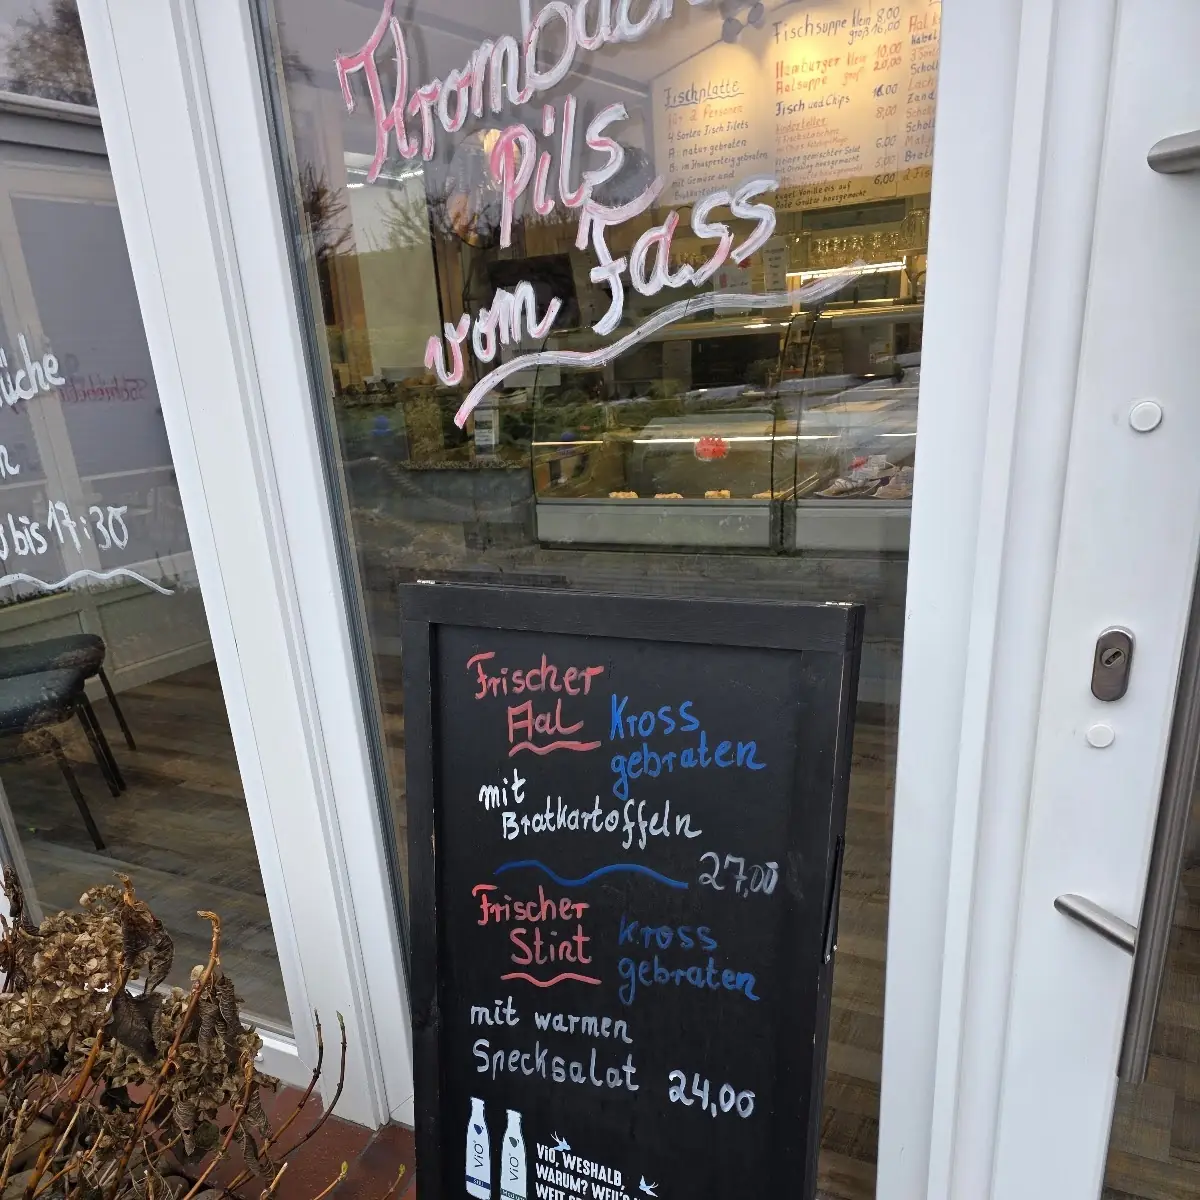 Krombach
Pils
vom Fass
Fischsuppe klein 8,00
groß 16,00
Hamburger klein 10,00
Aalsuppe groß 20,00
Fisch und Chips 16,00
8,00
6,00
5,00
6,00
Fischplatte
für 2 Personen
4 Sorten Fisch Filets
A: natur gebraten
B: im Knusperteig gebraten
mit Gemüse und
Bratkartoffeln
Kugel Vanilleeis auf
Rote Grütze hausgemacht
üche
n
bis 17:30
Frischer
Aal Kross
gebraten
mit
Bratkartoffeln
27,00
Frischer
Stint kross
gebraten
mit warmen
Specksalat 24,00
ViO ViO
ViO, WESHALB,
WARUM? WEIL'S
WEIT